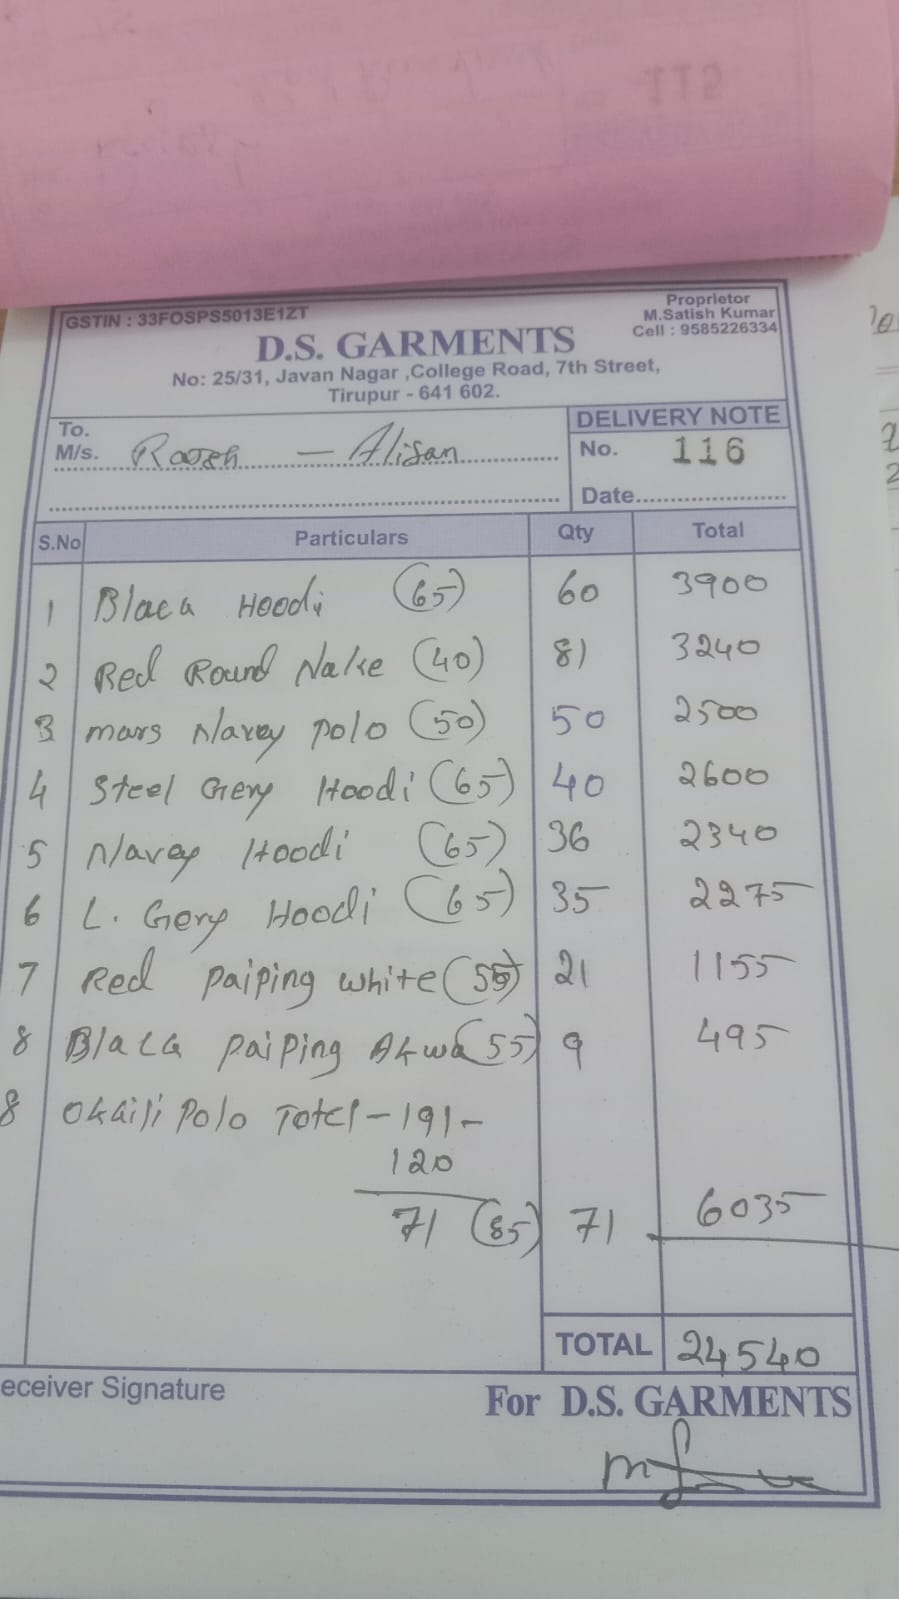 GSTIN : 33FOSPS5013E1ZT
Proprietor
M.Satish Kumar
Cell : 9585226334
D.S. GARMENTS
No: 25/31, Javan Nagar ,College Road, 7th Street,
Tirupur - 641 602.
To.
M/s. — Alisan
DELIVERY NOTE
No. 116
Date
S.No Particulars Qty Total
1 Blaca Hoodi (65) 60 3900
2 Red Round Nake (40) 81 3240
3 mars Navey Polo (50) 50 2500
4 Steel Gery Hoodi (65) 40 2600
5 Navey Hoodi (65) 36 2340
6 L. Gery Hoodi (65) 35 2275
7 Red Paiping white (55) 21 1155
8 Blaca Paiping Akwa (55) 9 495
8 Okaili Polo Totel - 191 -
120
71 (85) 71 6035
TOTAL 24540
eceiver Signature
For D.S. GARMENTS